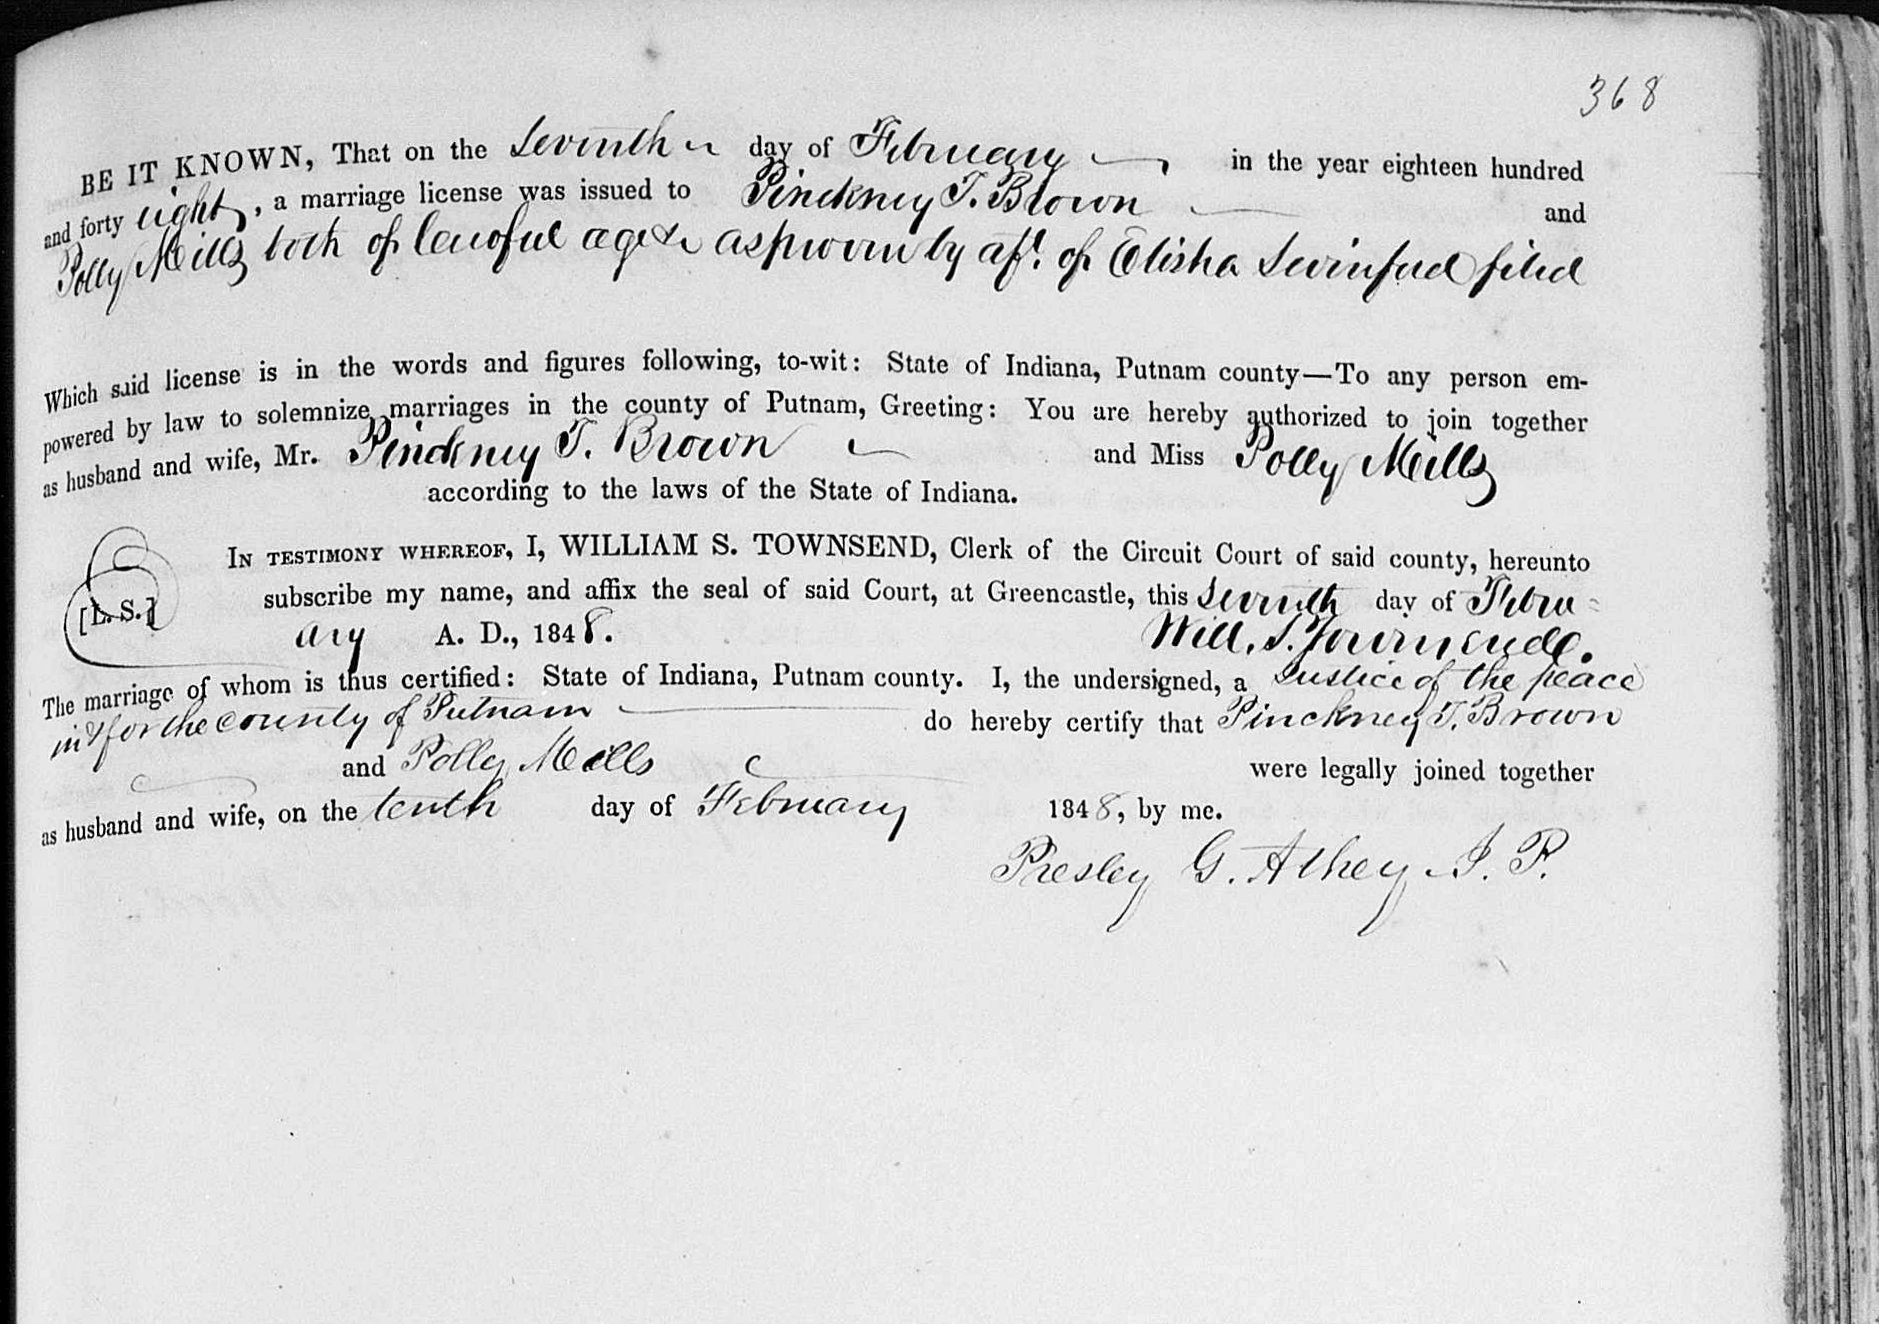 368
BE IT KNOWN, That on the Seventh day of February in the year eighteen hundred
and forty eight, a marriage license was issued to Pinckney T. Brown and
Polly Mills both of lawful age &c as proven by aft. of Elisha filed
Which said license is in the words and figures following, to-wit: State of Indiana, Putnam county—To any person em-
powered by law to solemnize marriages in the county of Putnam, Greeting: You are hereby authorized to join together
as husband and wife, Mr. Pinckney T. Brown and Miss Polly Mills
according to the laws of the State of Indiana.
IN TESTIMONY WHEREOF, I, WILLIAM S. TOWNSEND, Clerk of the Circuit Court of said county, hereunto
subscribe my name, and affix the seal of said Court, at Greencastle, this Seventh day of Febru-
[L. S.] ary A. D., 1848. Will. S. Townsend.
The marriage of whom is thus certified: State of Indiana, Putnam county. I, the undersigned, a Justice of the peace
in & for the county of Putnam do hereby certify that Pinckney T. Brown
and Polly Mills were legally joined together
as husband and wife, on the tenth day of February 1848, by me.
Presley G. Athey J. P.